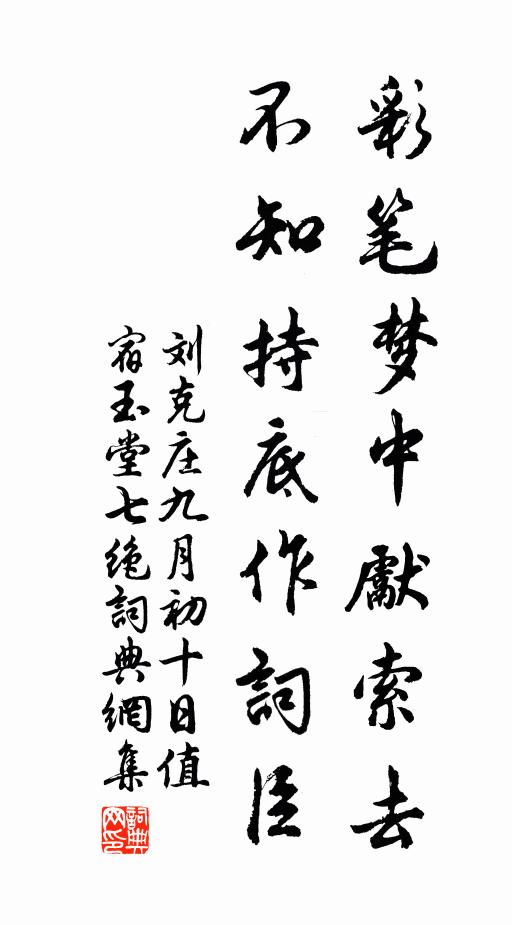 彩笔梦中獻索去
不知持底作詞臣
刘克庄九月初十日值
宿玉堂七绝詞典網集
詞典
网印